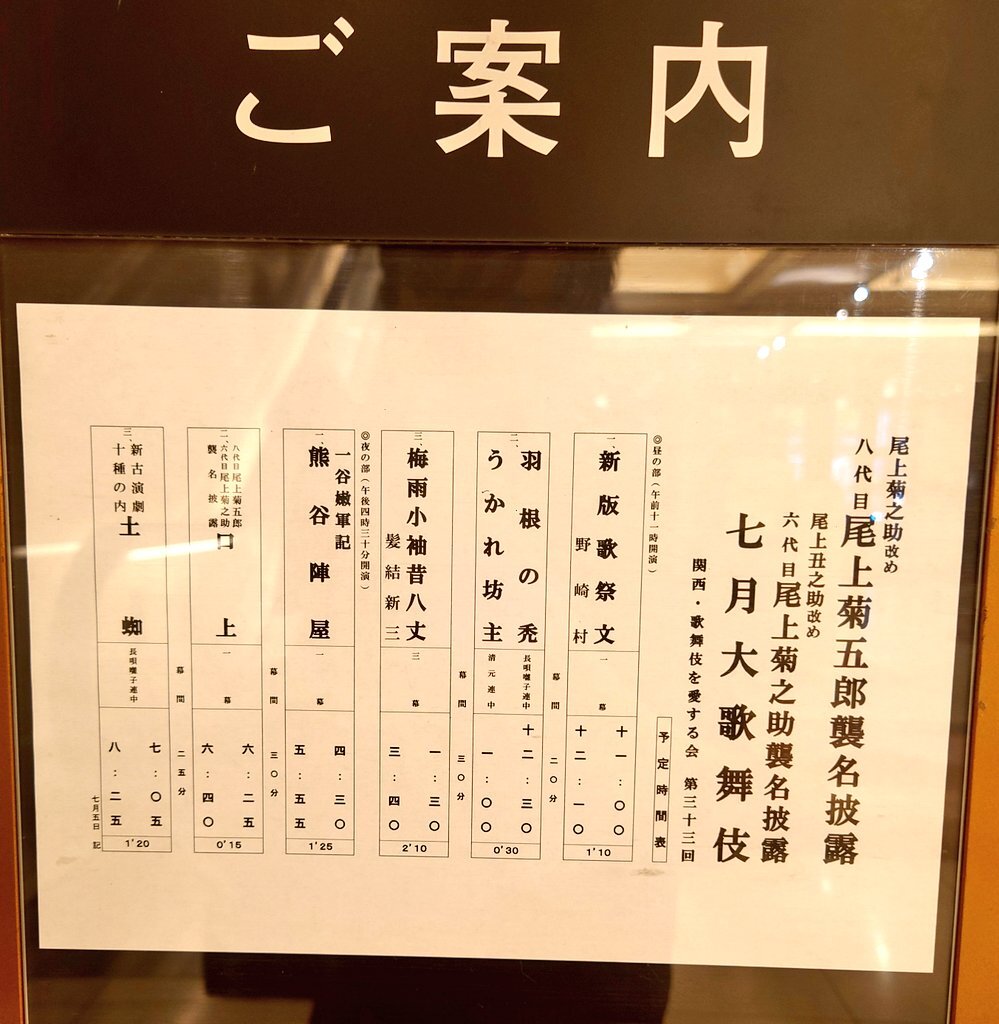 ご案内
尾上菊之助改め
八代目尾上菊五郎襲名披露
尾上丑之助改め
六代目尾上菊之助襲名披露
七月大歌舞伎
関西・歌舞伎を愛する会 第三十三回
予定時間表
◎昼の部(午前十一時開演)
一、新版歌祭文
野崎村
一幕
十一:〇〇
十二:一〇
1'10
幕間 二〇分
二、羽根の禿
うかれ坊主
長唄囃子連中
清元連中
十二:三〇
一:〇〇
0'30
幕間 三〇分
三、梅雨小袖昔八丈
髪結新三
三幕
一:三〇
三:四〇
2'10
◎夜の部(午後四時三十分開演)
一、一谷嫩軍記
熊谷陣屋
一幕
四:三〇
五:五五
1'25
幕間 三〇分
二、八代目尾上菊五郎
六代目尾上菊之助
襲名披露
口上
一幕
六:二五
六:四〇
0'15
幕間 二五分
三、新古演劇
十種の内
土蜘
長唄囃子連中
七:〇五
八:二五
1'20
七月五日 記